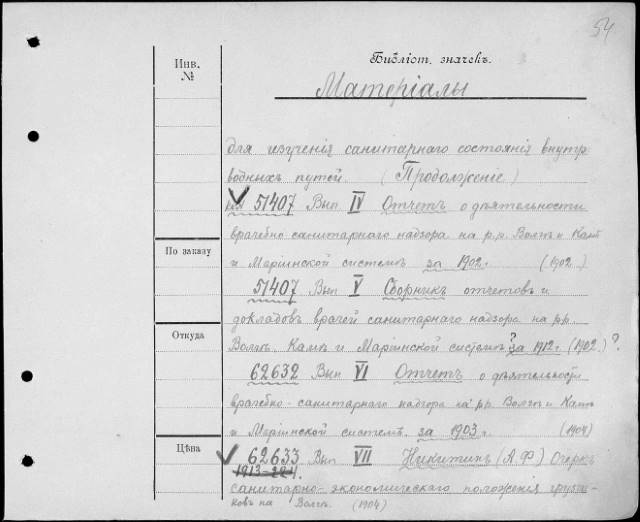 54
Инв.
№
Библіот. значекъ.
Матеріалы
для изученія санитарнаго состоянія внутр.
водныхъ путей. (Продолженіе)
51407 Вып IV Отчетъ о дѣятельности
врачебно-санитарнаго надзора на р.р. Волгѣ и Камѣ
и Маріинской системѣ за 1902 г. (1902.)
По заказу
51407 Вып V Сборникъ отчетовъ и
докладовъ врачей санитарнаго надзора на р.р.
Откуда
Волгѣ, Камѣ и Маріинской системѣ ? за 1912 г. (1902) ?
62632 Вып VI Отчетъ о дѣятельности
врачебно-санитарнаго надзора на р.р. Волгѣ и Камѣ
и Маріинской системѣ за 1903 г. (1904)
Цѣна
62633 Вып VII Никитинъ (А.Ф) Очеркъ
санитарно-экономическаго положенія грузчи-
ковъ на Волгѣ. (1904)